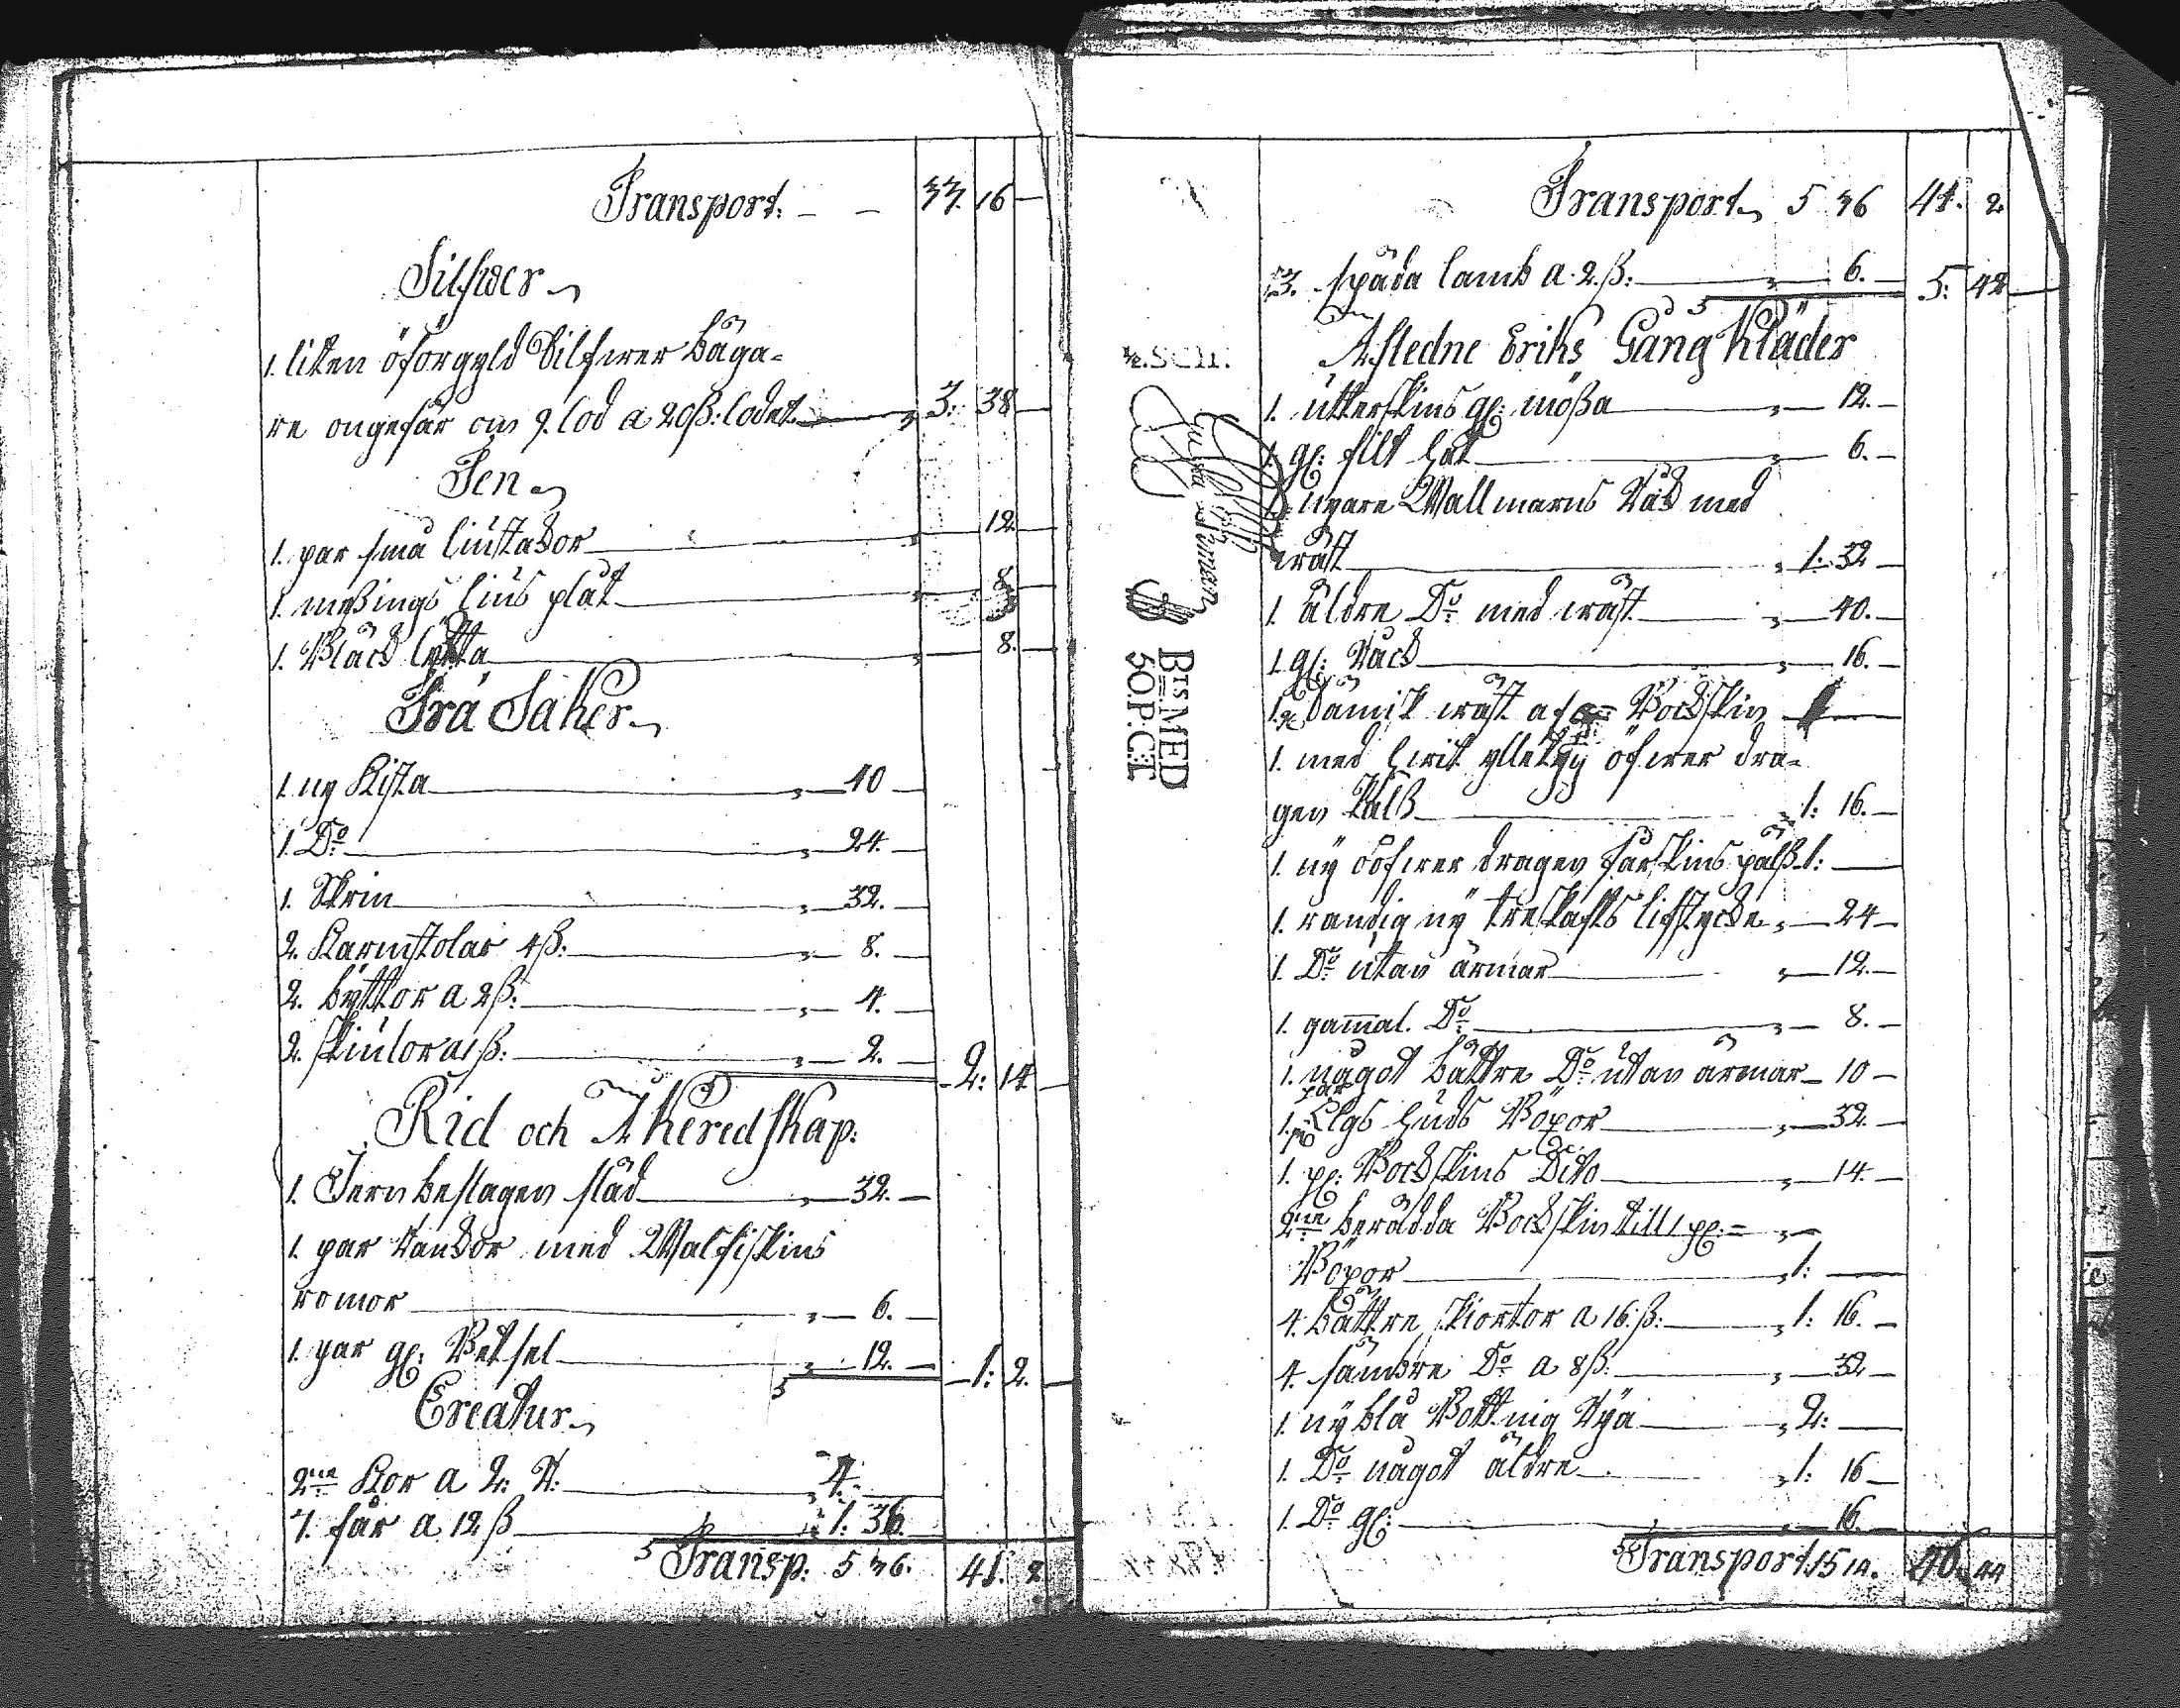 Transport. — — 33. 16 —
Silfwer
1. liten oförgyld Silfwer bäga=
re ongefär om 9. lod a 20 ß: lodet 3. 38 —
Jen
1. par små liustakor 12. —
1. messings lius plåt 8 —
1. Bläck lykta 8. —
Trä Saker
1. ny Kista 40 —
1. Do 24. —
1. Skrin 32. —
2. Karmstolar 4 ß: 8. —
2. byttor a 2 ß: 4. —
2. skiulor a 1 ß: 2. — 2: 14 —
Rid och Åkeredskap:
1. Jern beslagen släd 32. —
1. par med Walfiskins
romor 6. —
1. par gl: Betsel 12. — 1: 2. —
Creatur
2ne Kor a 2: R: 4. —
7. får a 12 ß 1: 36.
Transp: 5 36. 41. 2
Transport 5 36 41. 2.
3. späda lamb a 2 ß: 6. — 5: 42 —
Afledne Eriks Gång Kläder
1. utterskins gl: mössa 12. —
1. gl: filt hat 6. —
1. nyare Wallmarns råck med
wäst 1: 32 —
1. äldre Do med wäst 40. —
1. gl: råck 16. —
1. Sämsk wäst af Bockskin
1. med hwit ylletyg öfwer dra=
gen Pälß 1: 16. —
1. ny oöfwer dragen fårskins pälß 1: —
1. randig ny treskafts lifstycke 24 —
1. Do utan ärmar 12. —
1. gamal. Do 8. —
1. något bättre Do utan ärmar 10 —
1. par Elgs huds Böxor 32. —
1. gl: Bockskins Dito 14. —
2ne beredda Bockskin till 1 pr =
Böxor 1: —
4. bättre skiortor a 16 ß: 1: 16. —
4. sämbre Do a 8 ß: 32 —
1. ny blå Bottnig 2: —
1. Do något äldre 1: 16 —
1. Do gl: 16. —
Transport 15 14. 46. 44
SCH.
BTS MED
50. P.CT.